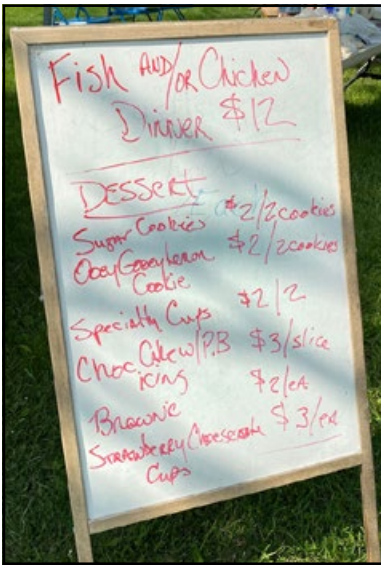 Fish AND/or Chicken
Dinner $12
Dessert
Sugar Cookies $2/2cookies
Ooey Gooey Lemon $2/2cookies
Cookie
Specialty Cups $2/2
Choc. Cake w/P.B $3/slice
icing
Brownie $2/ea
Strawberry Cheesecake $3/ea
Cups